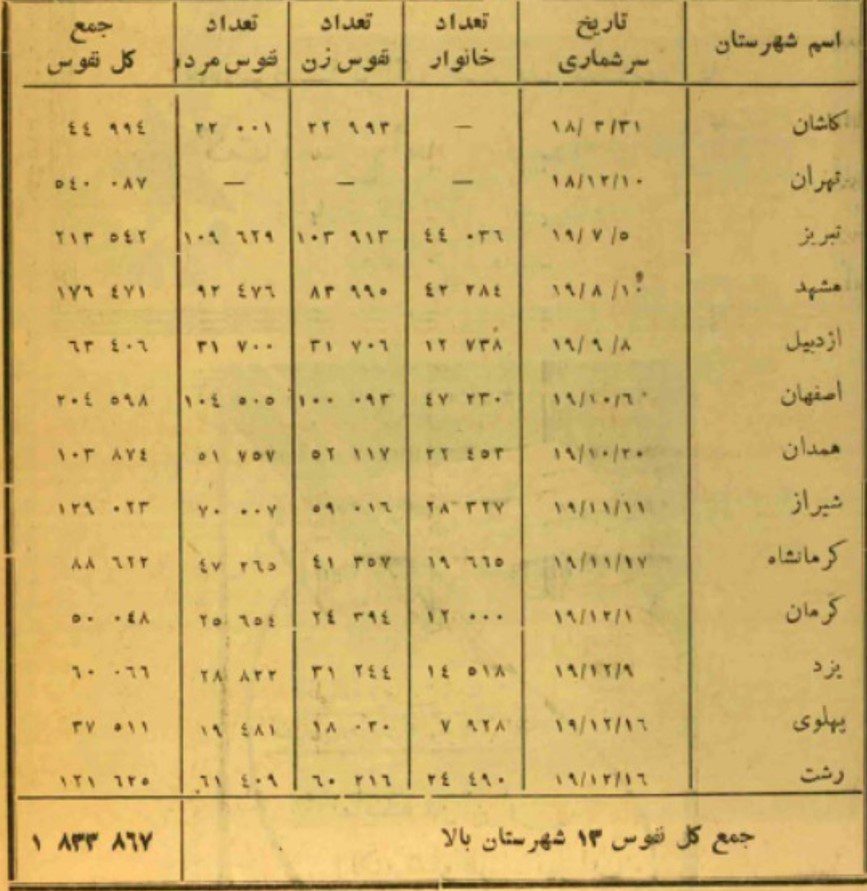 اسم شهرستان | تاریخ سرشماری | تعداد خانوار | تعداد نفوس زن | تعداد نفوس مرد | جمع کل نفوس
کاشان | ۱۸/۳/۳۱ | — | ۲۲ ۹۹۳ | ۲۲ ۰۰۱ | ٤٤ ۹۹٤
تهران | ۱۸/۱۲/۱۰ | — | — | — | ٥٤۰ ۰۸۷
تبریز | ۱۹/۷/٥ | ٤٤ ۰۳٦ | ۱۰۳ ۹۱۳ | ۱۰۹ ٦۲۹ | ۲۱۳ ٥٤۲
مشهد | ۱۹/۸/۱۰ | ٤۲ ۲۸٤ | ۸۳ ۹۹٥ | ۹۲ ٤۷٦ | ۱۷٦ ٤۷۱
اردبیل | ۱۹/۹/۸ | ۱۲ ۷۳۸ | ۳۱ ۷۰٦ | ۳۱ ۷۰۰ | ٦۳ ٤۰٦
اصفهان | ۱۹/۱۰/٦ | ٤۷ ۲۳۰ | ۱۰۰ ۰۹۳ | ۱۰٤ ٥۰٥ | ۲۰٤ ٥۹۸
همدان | ۱۹/۱۰/۲۰ | ۲۲ ٤٥۳ | ٥۲ ۱۱۷ | ٥۱ ۷٥۷ | ۱۰۳ ۸۷٤
شیراز | ۱۹/۱۱/۱۱ | ۲۸ ۳۲۷ | ٥۹ ۰۱٦ | ۷۰ ۰۰۷ | ۱۲۹ ۰۲۳
کرمانشاه | ۱۹/۱۱/۱۷ | ۱۹ ٦٦٥ | ٤۱ ۳٥۷ | ٤۷ ۲٦٥ | ۸۸ ٦۲۲
کرمان | ۱۹/۱۲/۱ | ۱۲ ۰۰۰ | ۲٤ ۳۹٤ | ۲٥ ٦٥٤ | ٥۰ ۰٤۸
یزد | ۱۹/۱۲/۹ | ۱٤ ٥۱۸ | ۳۱ ۲٤٤ | ۲۸ ۸۲۲ | ٦۰ ۰٦٦
پهلوی | ۱۹/۱۲/۱٦ | ۷ ۹۲۸ | ۱۸ ۰۳۰ | ۱۹ ٤۸۱ | ۳۷ ٥۱۱
رشت | ۱۹/۱۲/۱٦ | ۲٤ ٤۹۰ | ٦۰ ۲۱٦ | ٦۱ ٤۰۹ | ۱۲۱ ٦۲٥
جمع کل نفوس ۱۳ شهرستان بالا | ۱ ۸۳۳ ۸٦۷